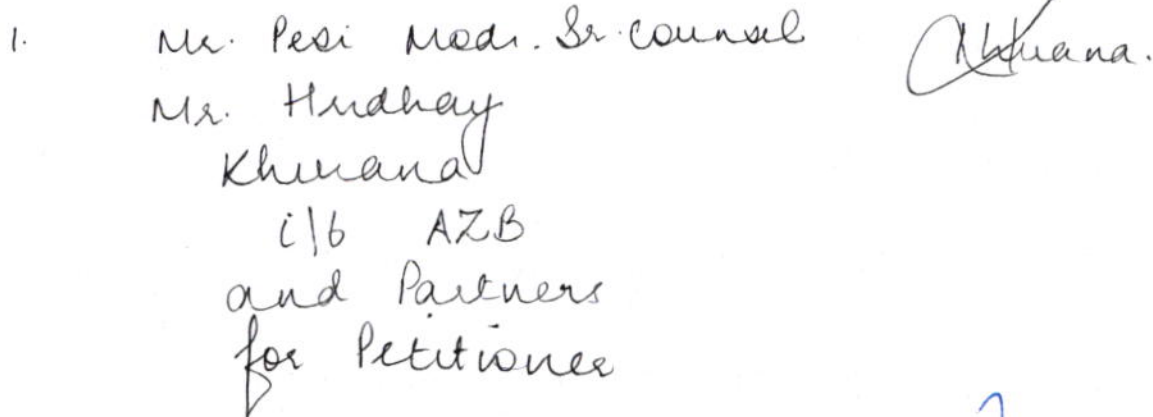 1. Mr. Pesi Modi. Sr. Counsel
Mr. Hrudhay
Khurana
i/b AZB
and Partners
for Petitioner
Khurana.